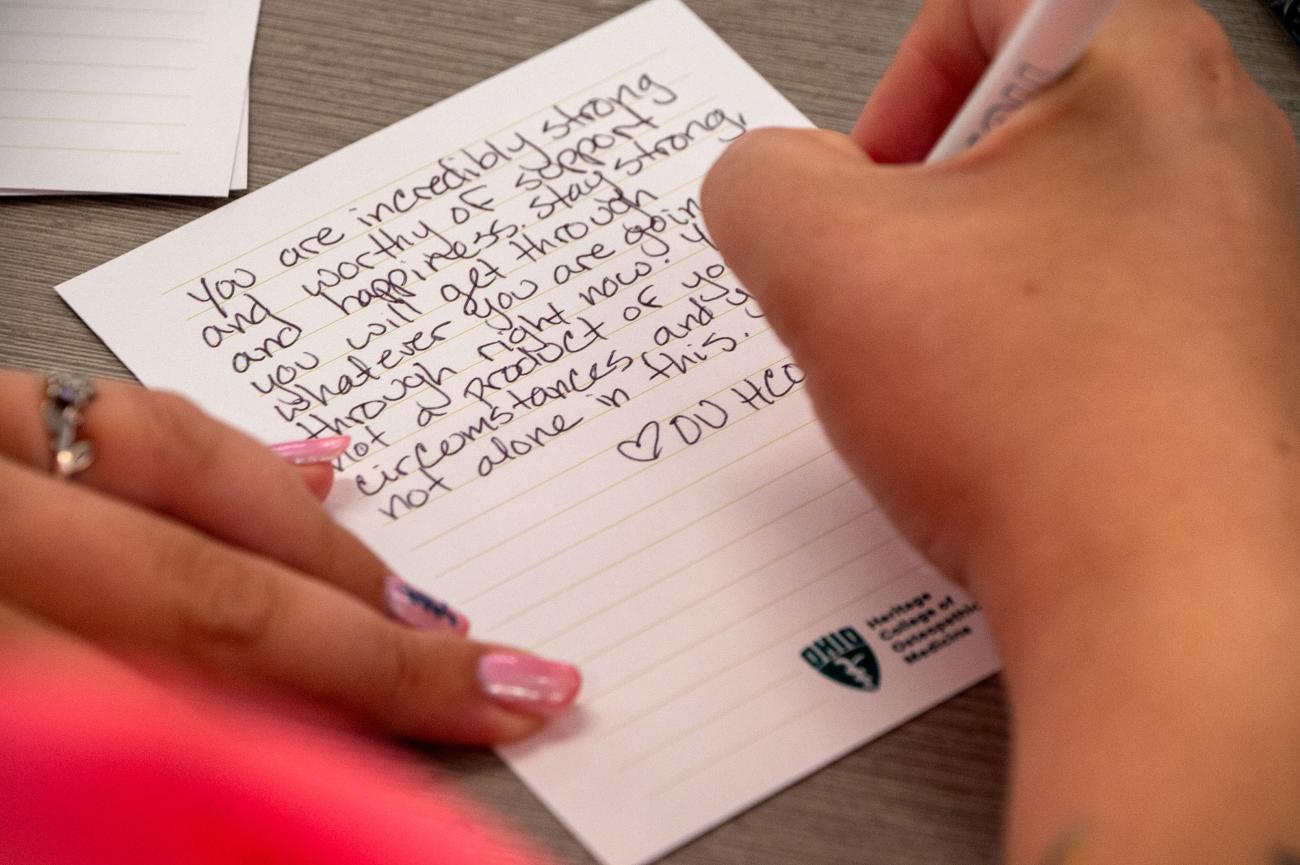 You are incredibly strong
and worthy of support
and happiness. stay strong,
you will get through
whatever you are going
through right now!
not a product of
circumstances and
not alone in this.
♡ OU HCO
OHIO
Heritage
College of
Osteopathic
Medicine